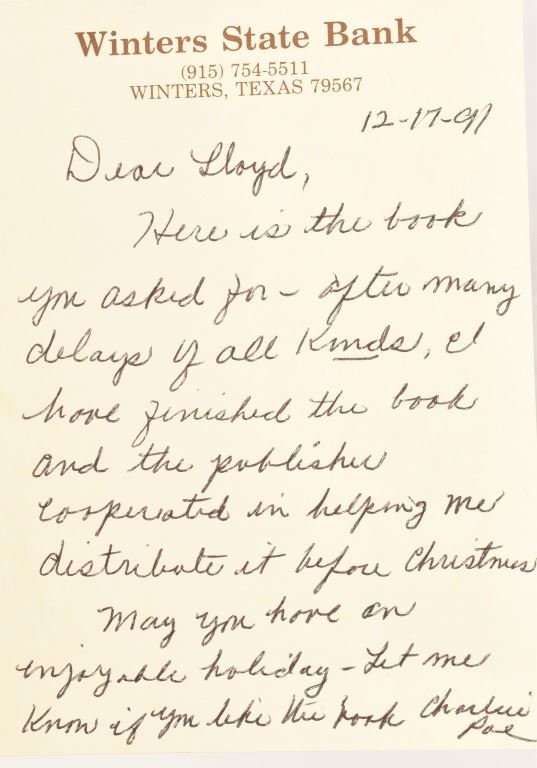 Winters State Bank
(915) 754-5511
WINTERS, TEXAS 79567
12-17-91
Dear Lloyd,
Here is the book
you asked for - after many
delays of all kinds, I
have finished the book
and the publisher
cooperated in helping me
distribute it before Christmas
May you have an
enjoyable holiday - Let me
know if you like the book Charlie
Poe